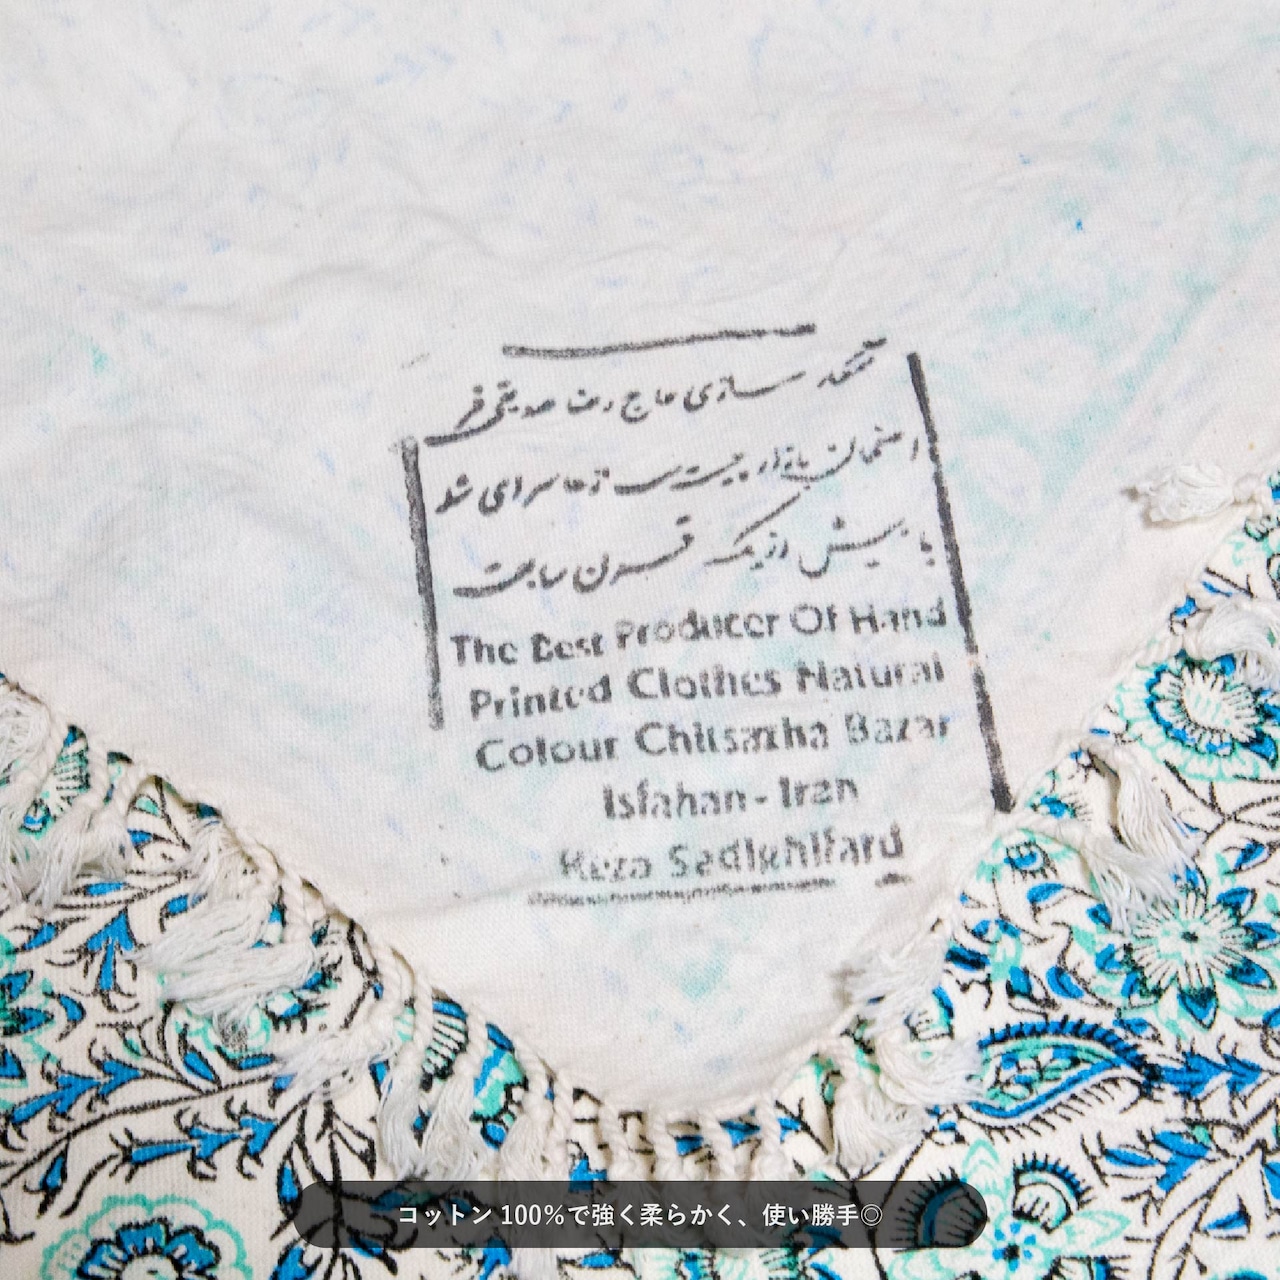 قلمکار سازی حاج رضا صدیقی فر
اصفهان بازار چیت سازها سرای شو
با بیش از یک قرن سابقه
The Best Producer Of Hand
Printed Clothes Natural
Colour Chitsazha Bazar
Isfahan - Iran
Reza Sedighifard
コットン 100%で強く柔らかく、使い勝手◎